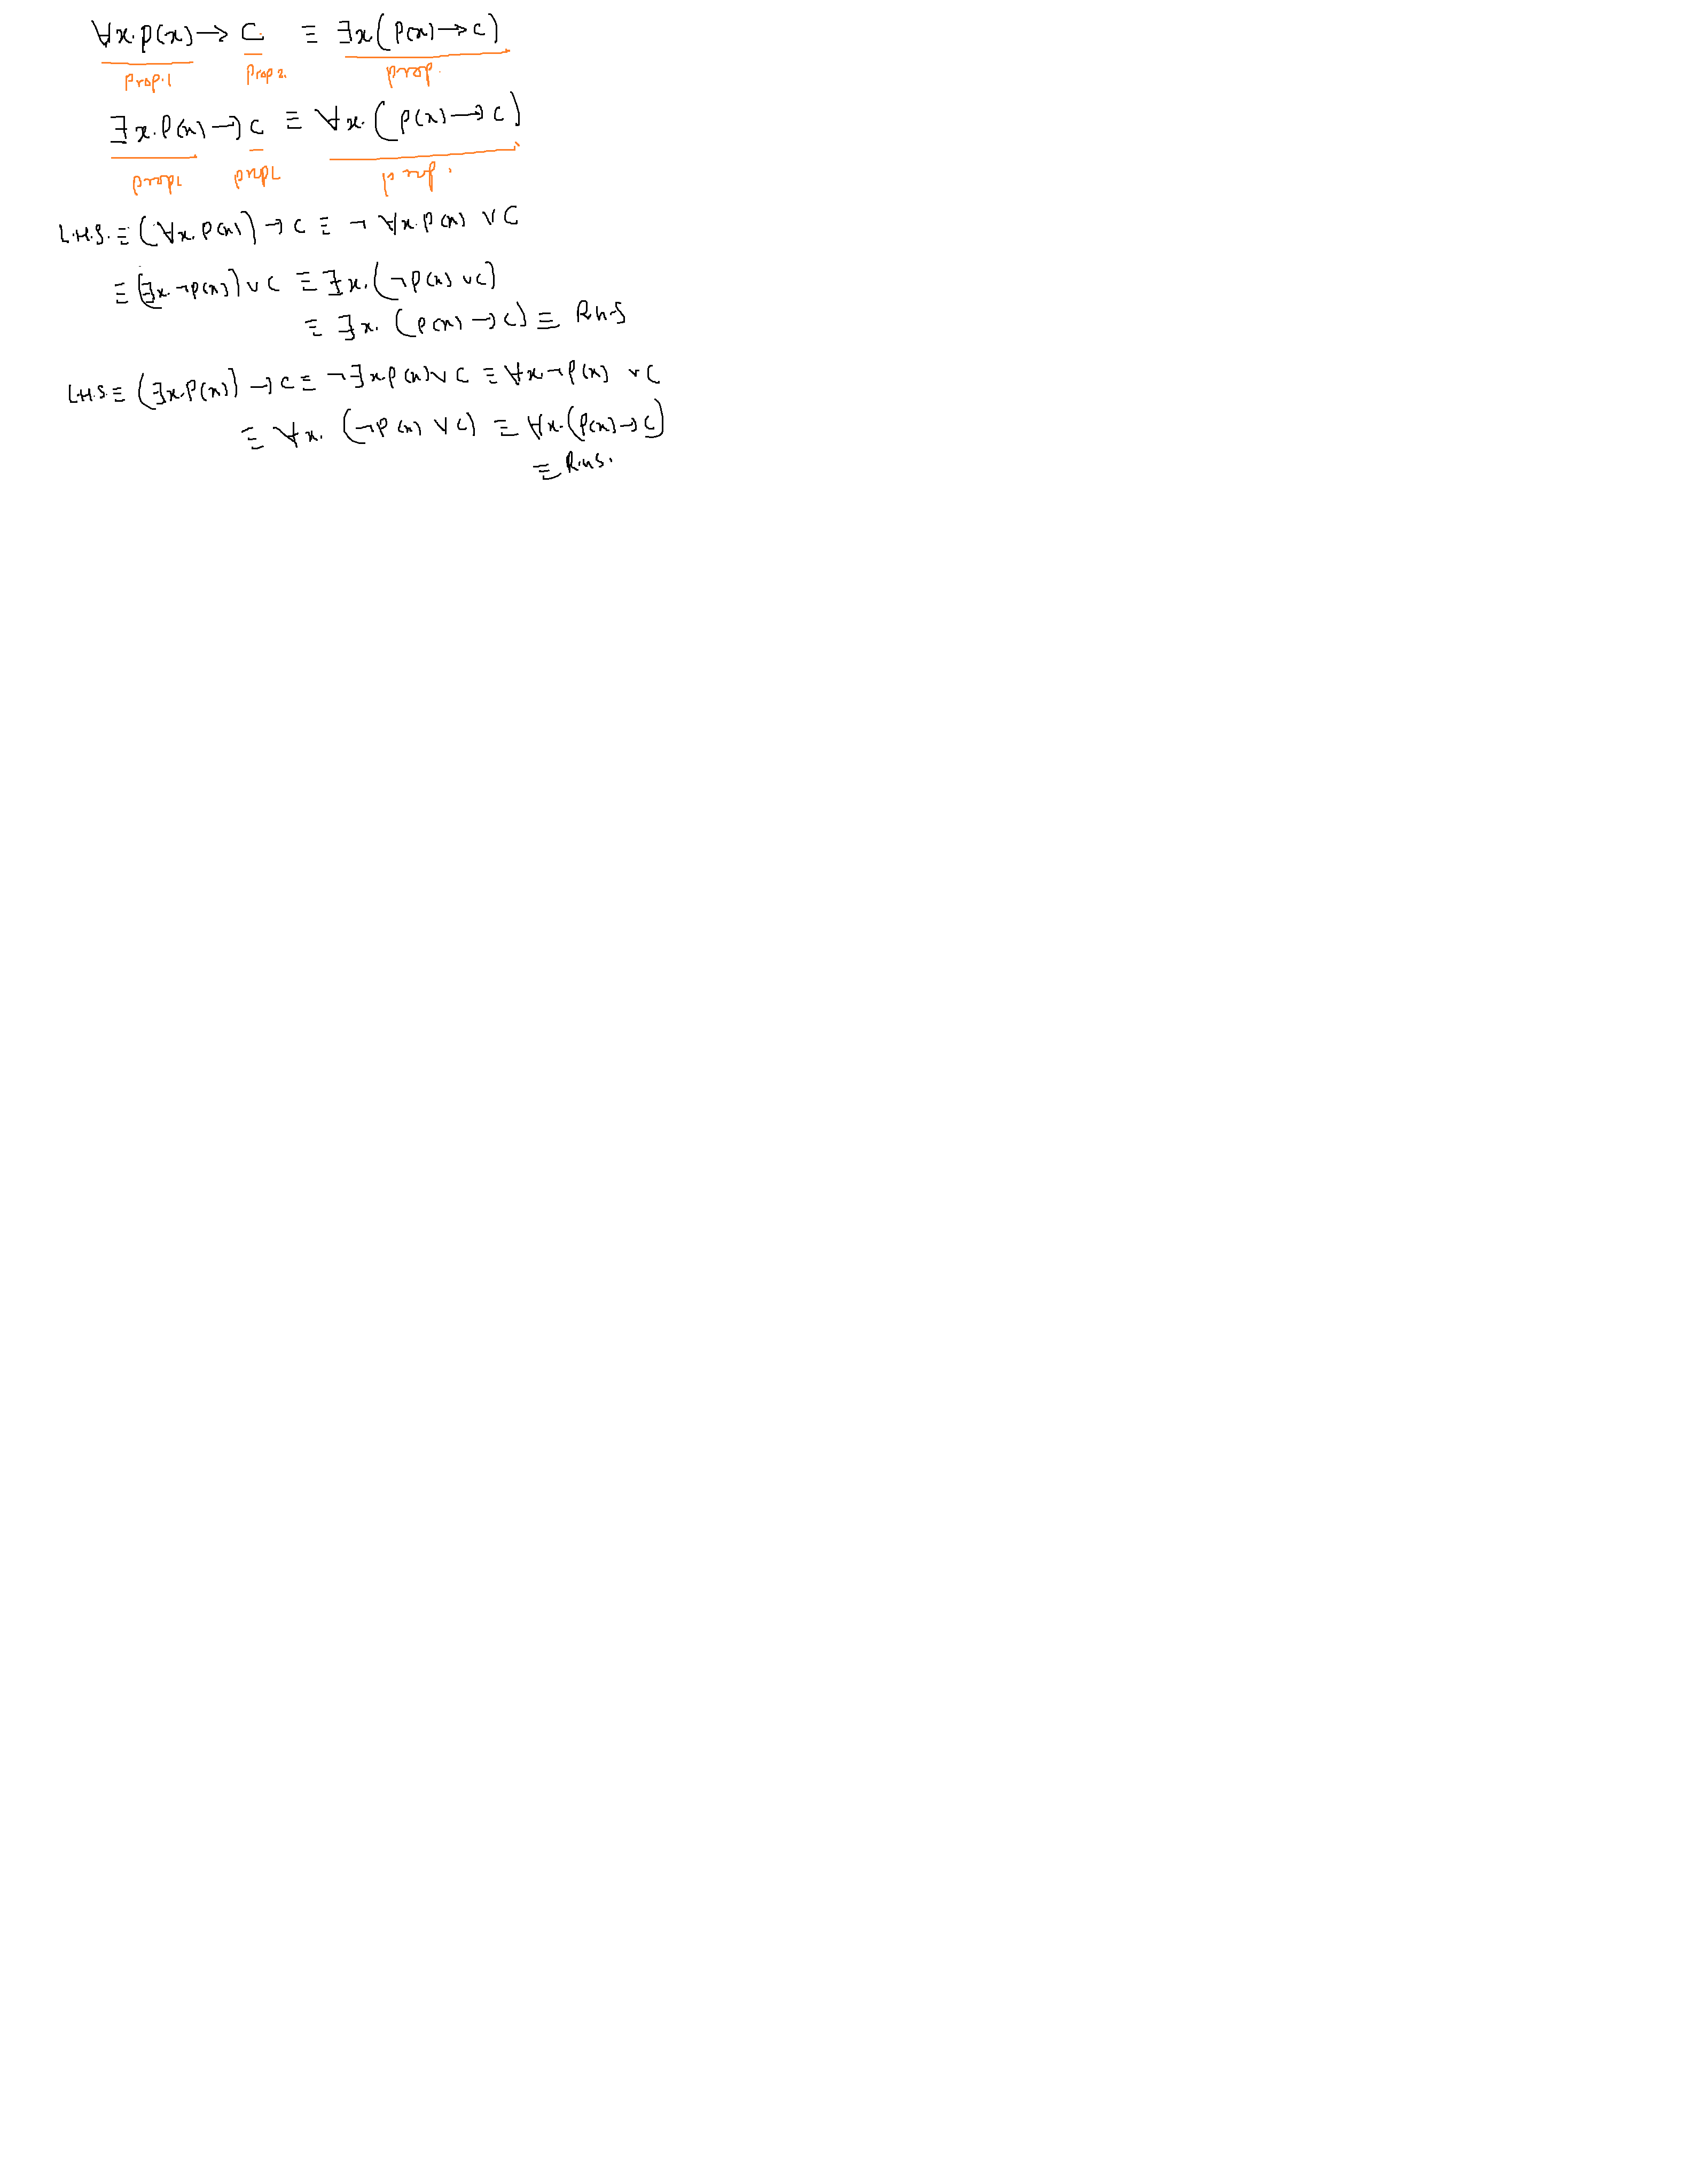 ∀x.P(x) → C ≡ ∃x(P(x) → C)
Prop.1 Prop 2. prop.
∃x.P(x) → C ≡ ∀x.(P(x) → C)
prop1 prop2 prop.
L.H.S. ≡ (∀x.P(x)) → C ≡ ¬ ∀x.P(x) ∨ C
≡ (∃x.¬P(x)) ∨ C ≡ ∃x.(¬P(x) ∨ C)
≡ ∃x. (P(x) → C) ≡ R.H.S
L.H.S. ≡ (∃x.P(x)) → C ≡ ¬∃x.P(x) ∨ C ≡ ∀x.¬P(x) ∨ C
≡ ∀x. (¬P(x) ∨ C) ≡ ∀x.(P(x) → C)
≡ R.H.S.